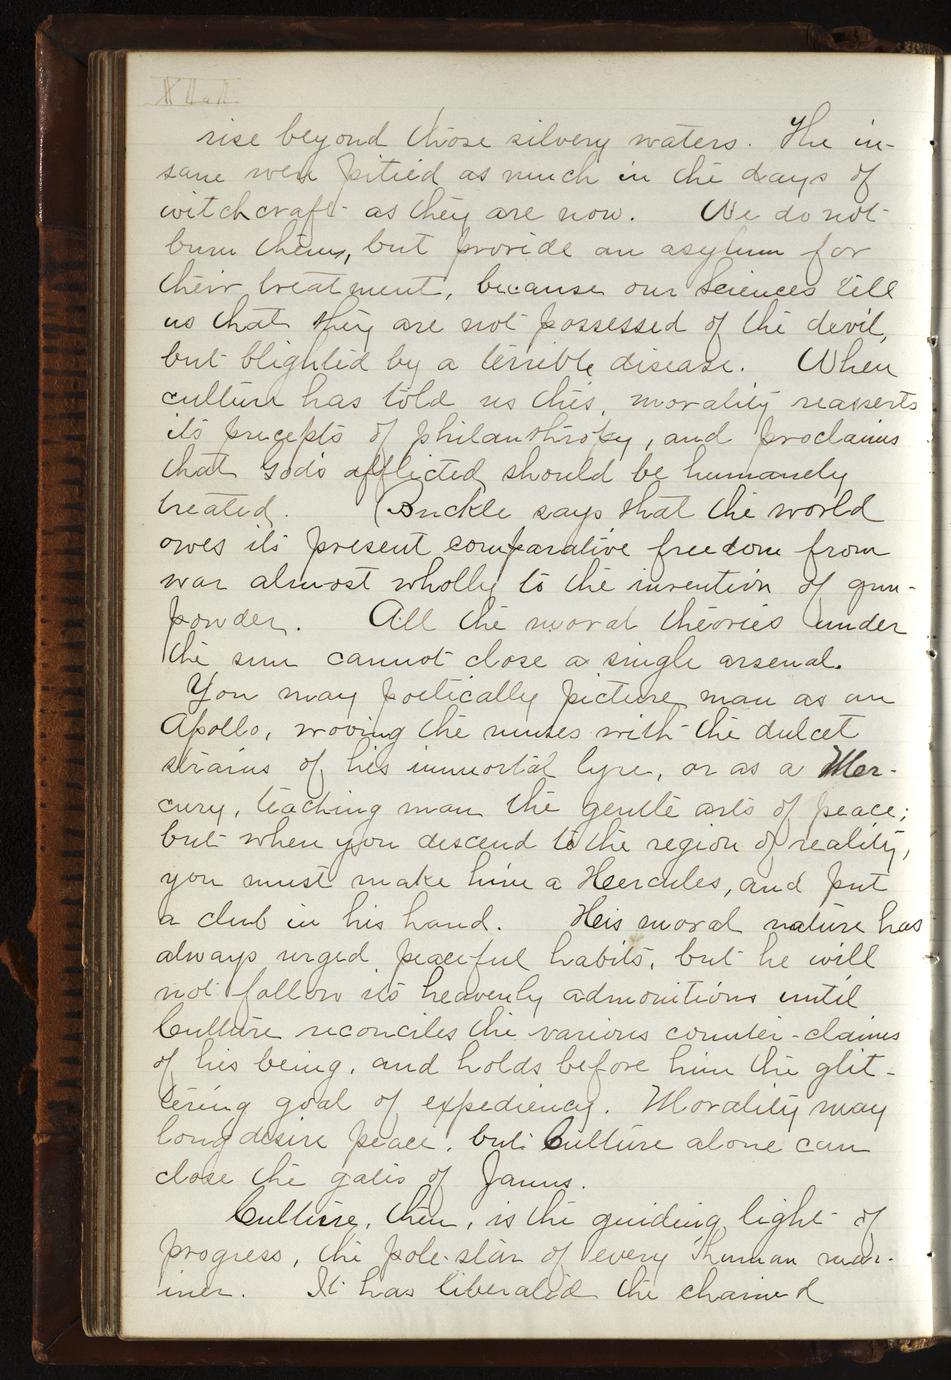 rise beyond those silvery waters. The in-
sane were pitied as much in the days of
witchcraft as they are now. We do not
burn them, but provide an asylum for
their treatment, because our sciences tell
us that they are not possessed of the devil,
but blighted by a terrible disease. When
culture has told us this, morality reasserts
its precepts of philanthropy, and proclaims
that God's afflicted should be humanely
treated. (Buckle says that the world
owes its present comparative freedom from
war almost wholly to the invention of gun-
powder. All the moral theories under
the sun cannot close a single arsenal.
You may poetically picture man as an
Apollo, moving the muses with the dulcet
strains of his immortal lyre, or as a Mer-
cury, teaching man the gentle arts of peace;
but when you descend to the region of reality,
you must make him a Hercules, and put
a club in his hand. His moral nature has
always urged peaceful habits, but he will
not follow its heavenly admonitions until
Culture reconciles the various counter-claims
of his being, and holds before him the glit-
tering goal of expediency. Morality may
long desire peace, but Culture alone can
close the gates of Janus.
Culture, then, is the guiding light of
progress, the pole-star of every human mar-
iner. It has liberated the chained